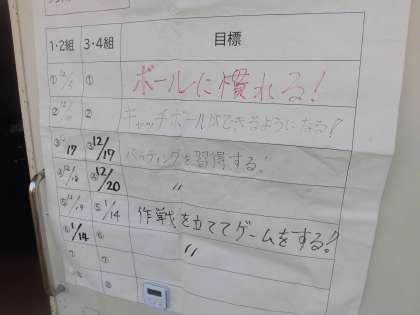 1・2組 3・4組 目標
① 12/ ① ボールに慣れる!
② 12/ ② キャッチボールができるようになる!
③ 17 ③ 12/17 バッティングを習得する!
④ 12/18 ④ 12/20 〃
⑤ 12/19 ⑤ 1/14 作戦を立ててゲームをする!
⑥ 1/14 ⑥ 〃
⑦ ⑦
⑧ ⑧